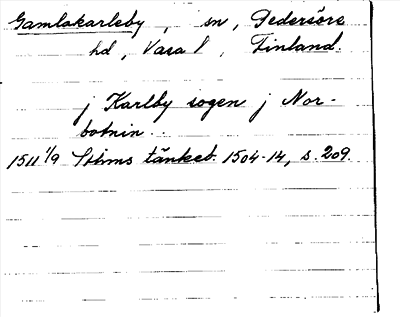 Gamlakarleby, sn, Pedersöre
hd, Vasa l, Finland.
j Karlby sogen j Nor-
botnin..
1511 1/9 Sthms tänkeb. 1504-14, s. 209.